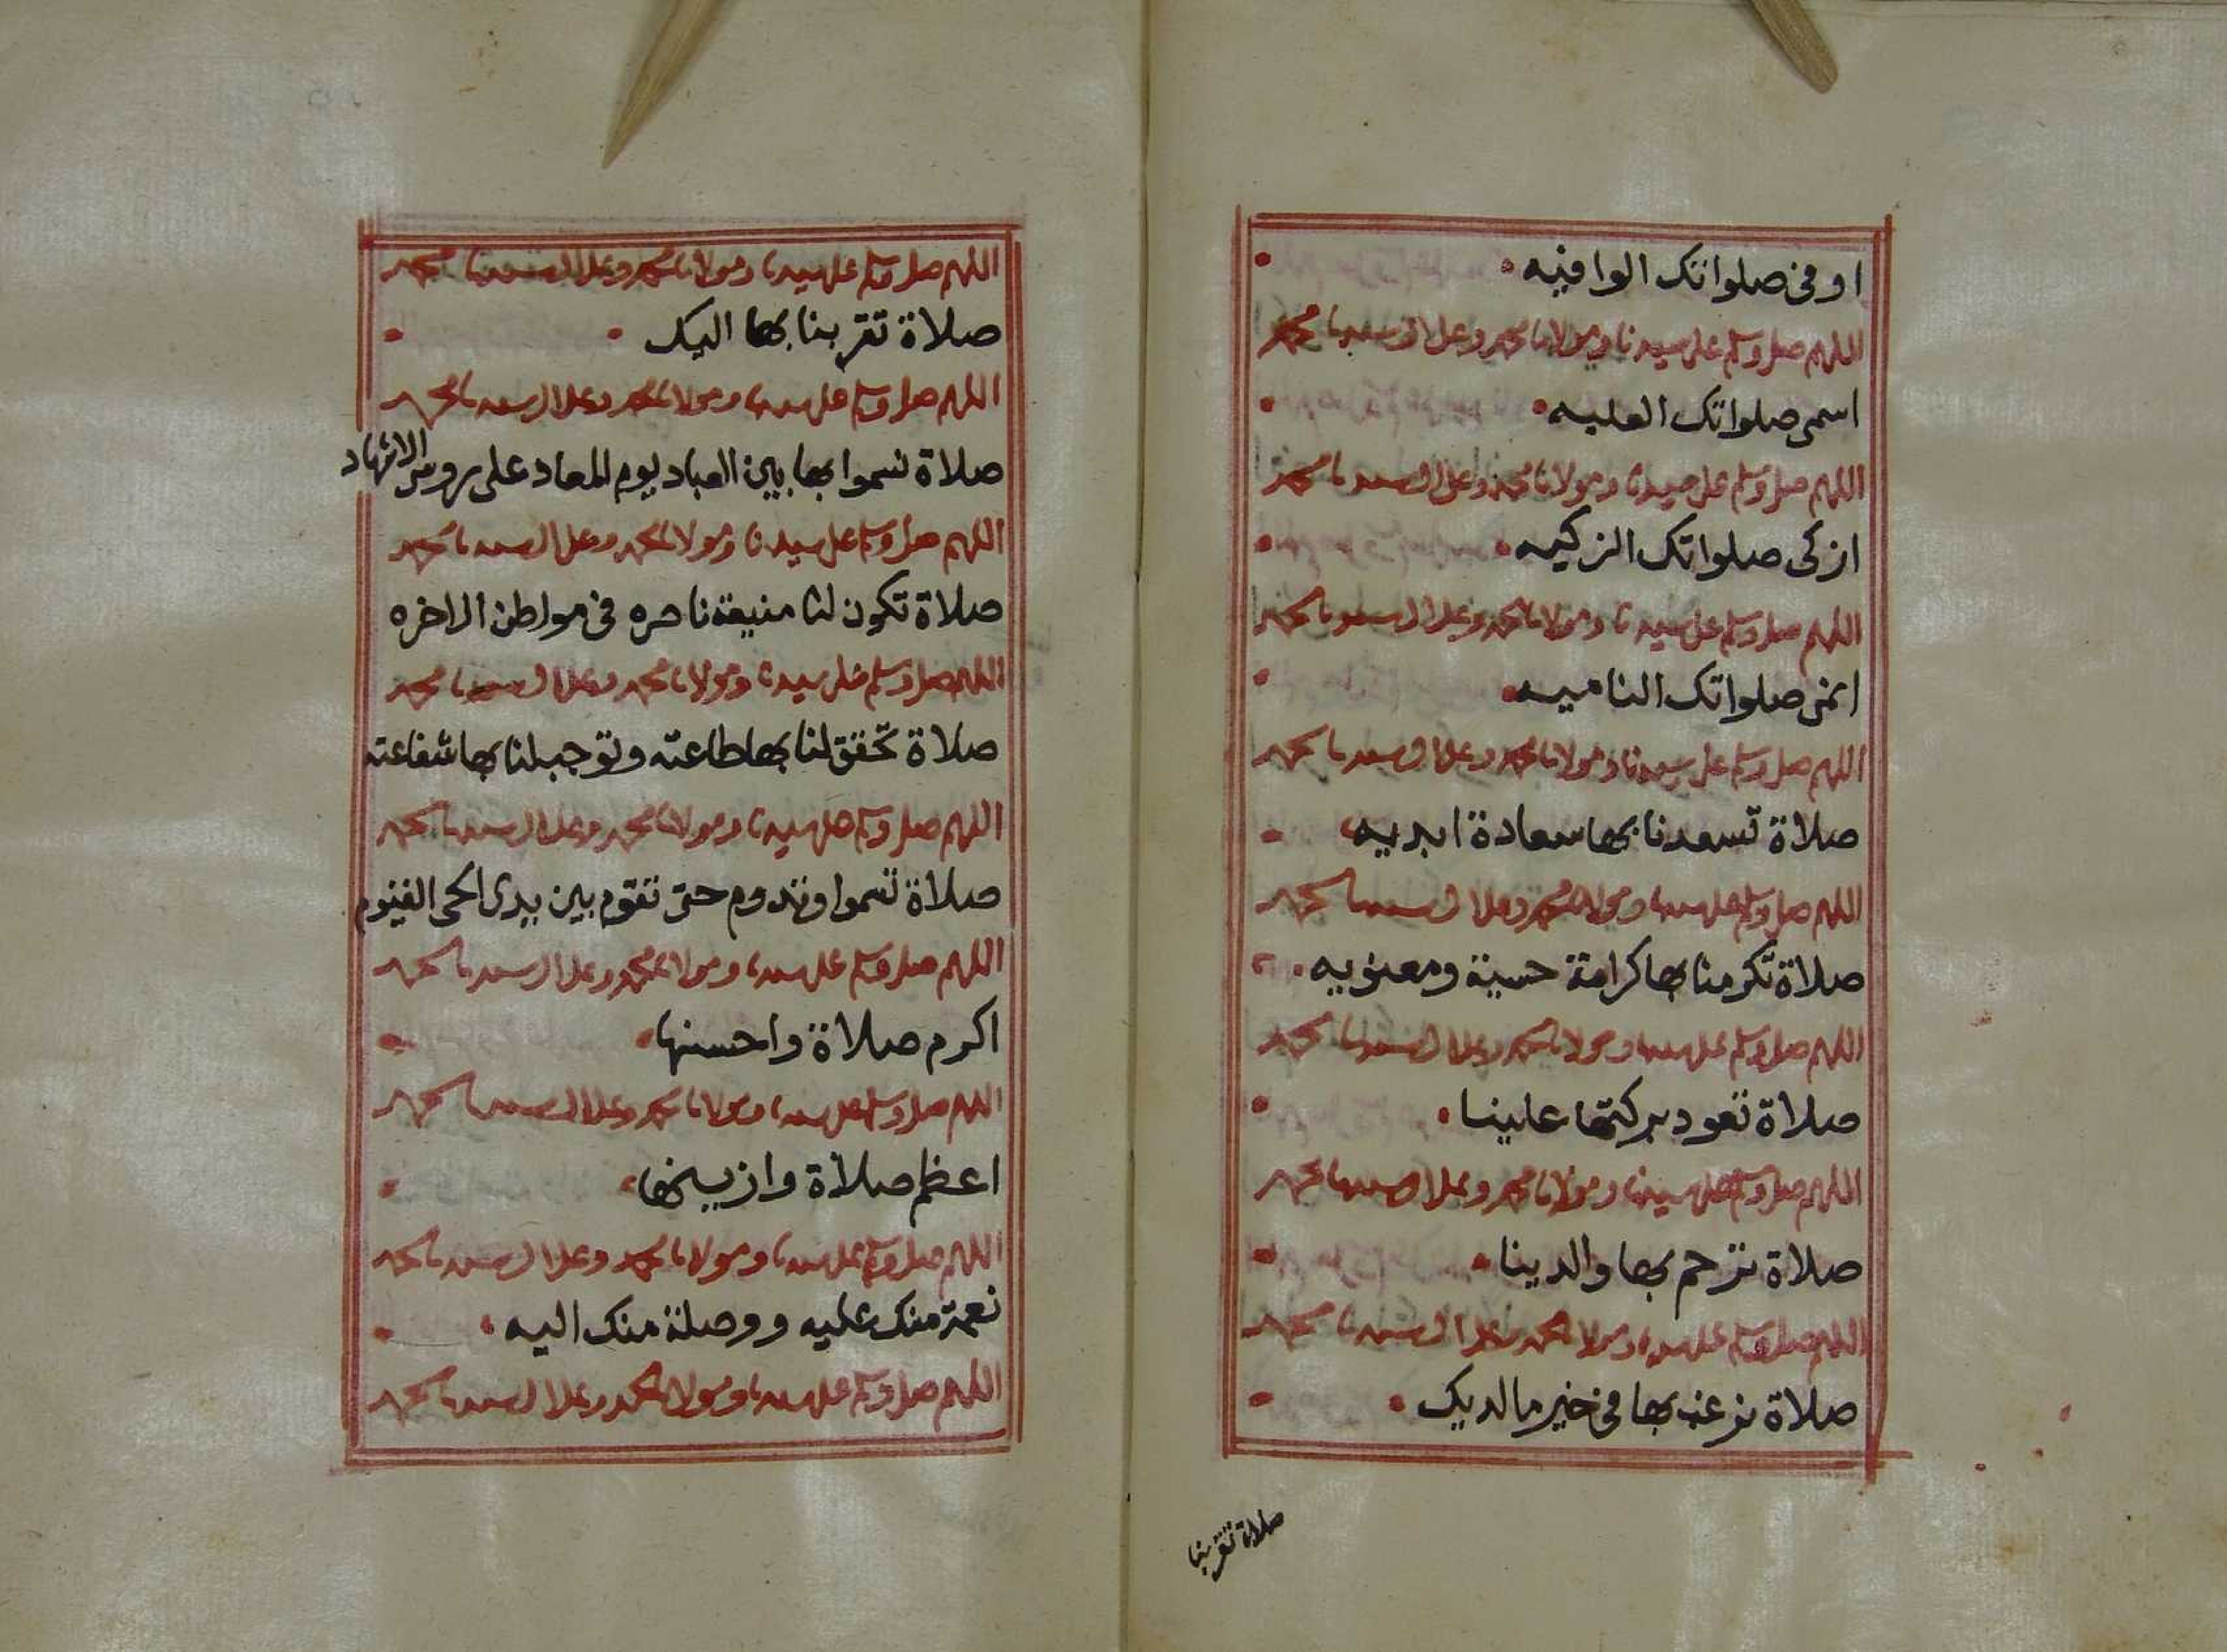 اوفى صلواتك الوافيه
اللهم صل وسلم على سيدنا ومولانا محمد وعلى ال سيدنا محمد
اسمى صلواتك العليه
اللهم صل وسلم على سيدنا ومولانا محمد وعلى ال سيدنا محمد
ازكى صلواتك الزكيه
اللهم صل وسلم على سيدنا ومولانا محمد وعلى ال سيدنا محمد
انمى صلواتك الناميه
اللهم صل وسلم على سيدنا ومولانا محمد وعلى ال سيدنا محمد
صلاة تسعدنا بها سعادة ابديه
اللهم صل وسلم على سيدنا ومولانا محمد وعلى ال سيدنا محمد
صلاة تكرمنا بها كرامة حسية ومعنويه
اللهم صل وسلم على سيدنا ومولانا محمد وعلى ال سيدنا محمد
صلاة تعود بركتها علينا
اللهم صل وسلم على سيدنا ومولانا محمد وعلى ال سيدنا محمد
صلاة ترحم بها والدينا
اللهم صل وسلم على سيدنا ومولانا محمد وعلى ال سيدنا محمد
صلاة نرغب بها فى خير ما لديك
صلاة تقربنا
اللهم صل وسلم على سيدنا ومولانا محمد وعلى ال سيدنا محمد
صلاة تقربنا بها اليك
اللهم صل وسلم على سيدنا ومولانا محمد وعلى ال سيدنا محمد
صلاة نسموا بها بين العباد يوم المعاد على روس الاشهاد
اللهم صل وسلم على سيدنا ومولانا محمد وعلى ال سيدنا محمد
صلاة تكون لنا منيعة ناصره فى مواطن الاخره
اللهم صل وسلم على سيدنا ومولانا محمد وعلى ال سيدنا محمد
صلاة تحقق لنا بها طاعته وتوجب لنا بها شفاعته
اللهم صل وسلم على سيدنا ومولانا محمد وعلى ال سيدنا محمد
صلاة تسموا وتدوم حتى تقوم بين يدى الحى القيوم
اللهم صل وسلم على سيدنا ومولانا محمد وعلى ال سيدنا محمد
اكرم صلاة واحسنها
اللهم صل وسلم على سيدنا ومولانا محمد وعلى ال سيدنا محمد
اعظم صلاة وازينها
اللهم صل وسلم على سيدنا ومولانا محمد وعلى ال سيدنا محمد
نعمة منك عليه ووصلة منك اليه
اللهم صل وسلم على سيدنا ومولانا محمد وعلى ال سيدنا محمد